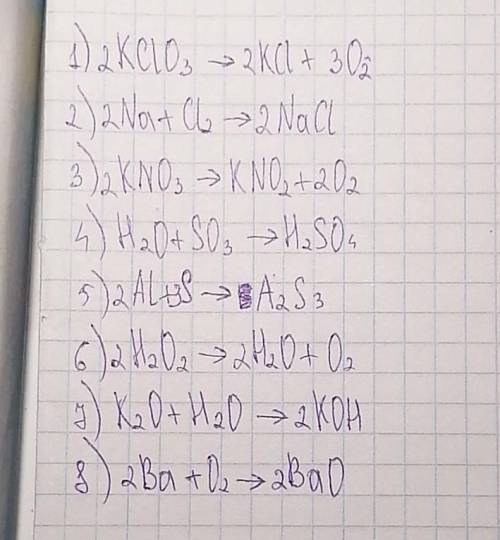 1) 2KClO₃ → 2KCl + 3O₂
2) 2Na + Cl₂ → 2NaCl
3) 2KNO₃ → KNO₂ + 2O₂
4) H₂O + SO₃ → H₂SO₄
5) 2Al + 3S → A₂S₃
6) 2H₂O₂ → 2H₂O + O₂
7) K₂O + H₂O → 2KOH
8) 2Ba + O₂ → 2BaO